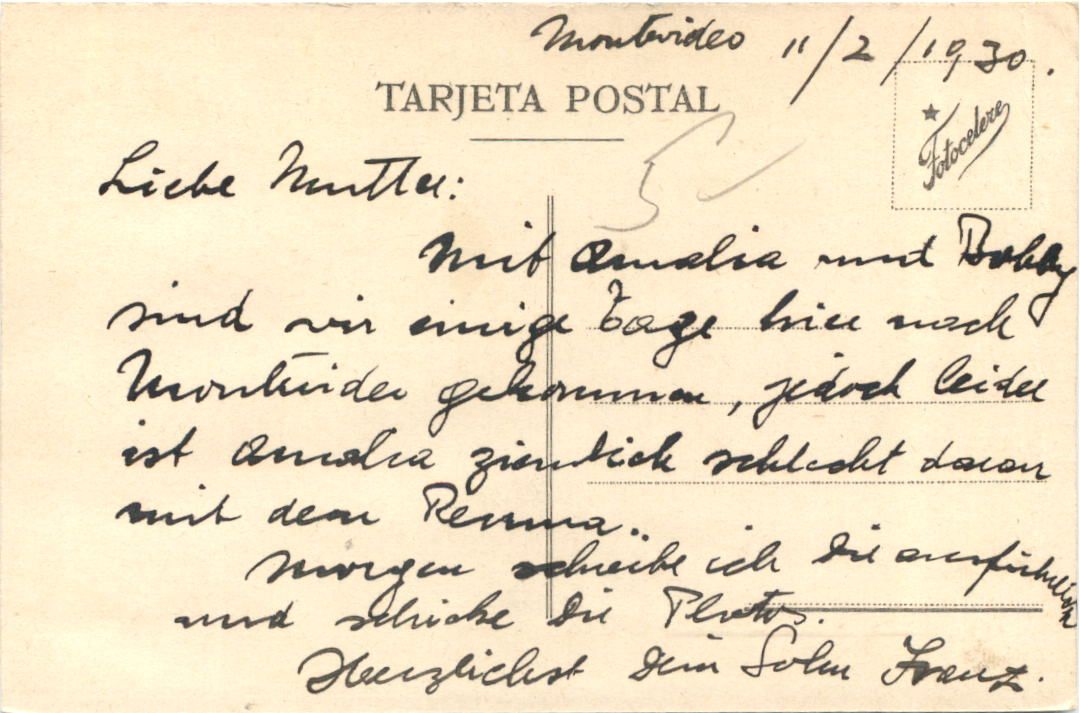 Montevideo 11/2/1930.
TARJETA POSTAL
Fotocelere
5
Liebe Mutter:
Mit Amalia und Bobby
sind wir einige Tage hier nach
Montevideo gekommen, jedoch leider
ist Amalia ziemlich schlecht daran
mit dem Reuma.
Morgen schreibe ich Dir ausführlich
und schicke Dir Photos.
Herzlichst Dein Sohn Franz.